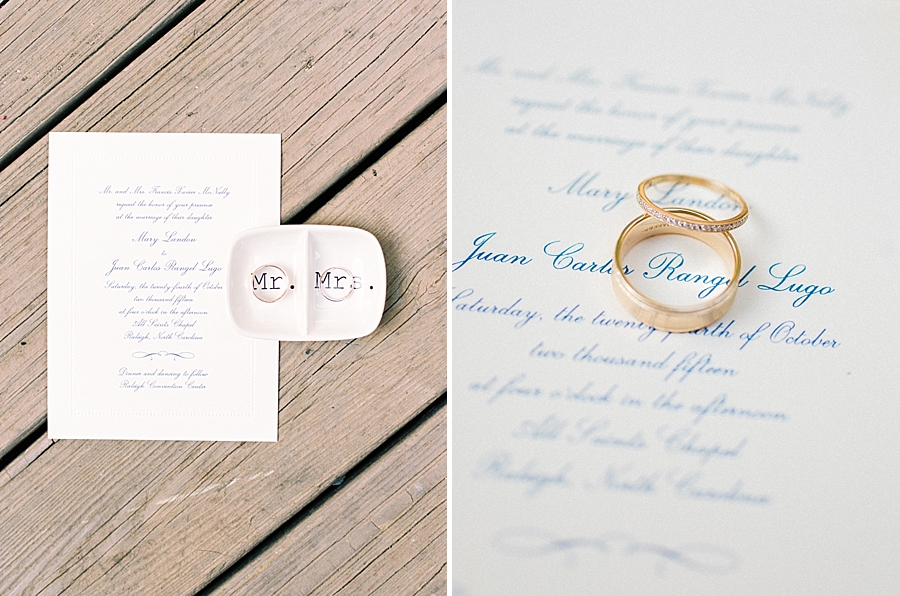 Mr. and Mrs. Francis Xavier McNelly
request the honor of your presence
at the marriage of their daughter
Mary Landon
to
Juan Carlos Rangel Lugo
Saturday, the twenty fourth of October
two thousand fifteen
at four o'clock in the afternoon
All Saints Chapel
Raleigh, North Carolina
Dinner and dancing to follow
Raleigh Convention Center
Mr. Mrs.
Mr. and Mrs. Francis Xavier McNelly
request the honor of your presence
at the marriage of their daughter
Mary Landon
Juan Carlos Rangel Lugo
Saturday, the twenty fourth of October
two thousand fifteen
at four o'clock in the afternoon
All Saints Chapel
Raleigh, North Carolina